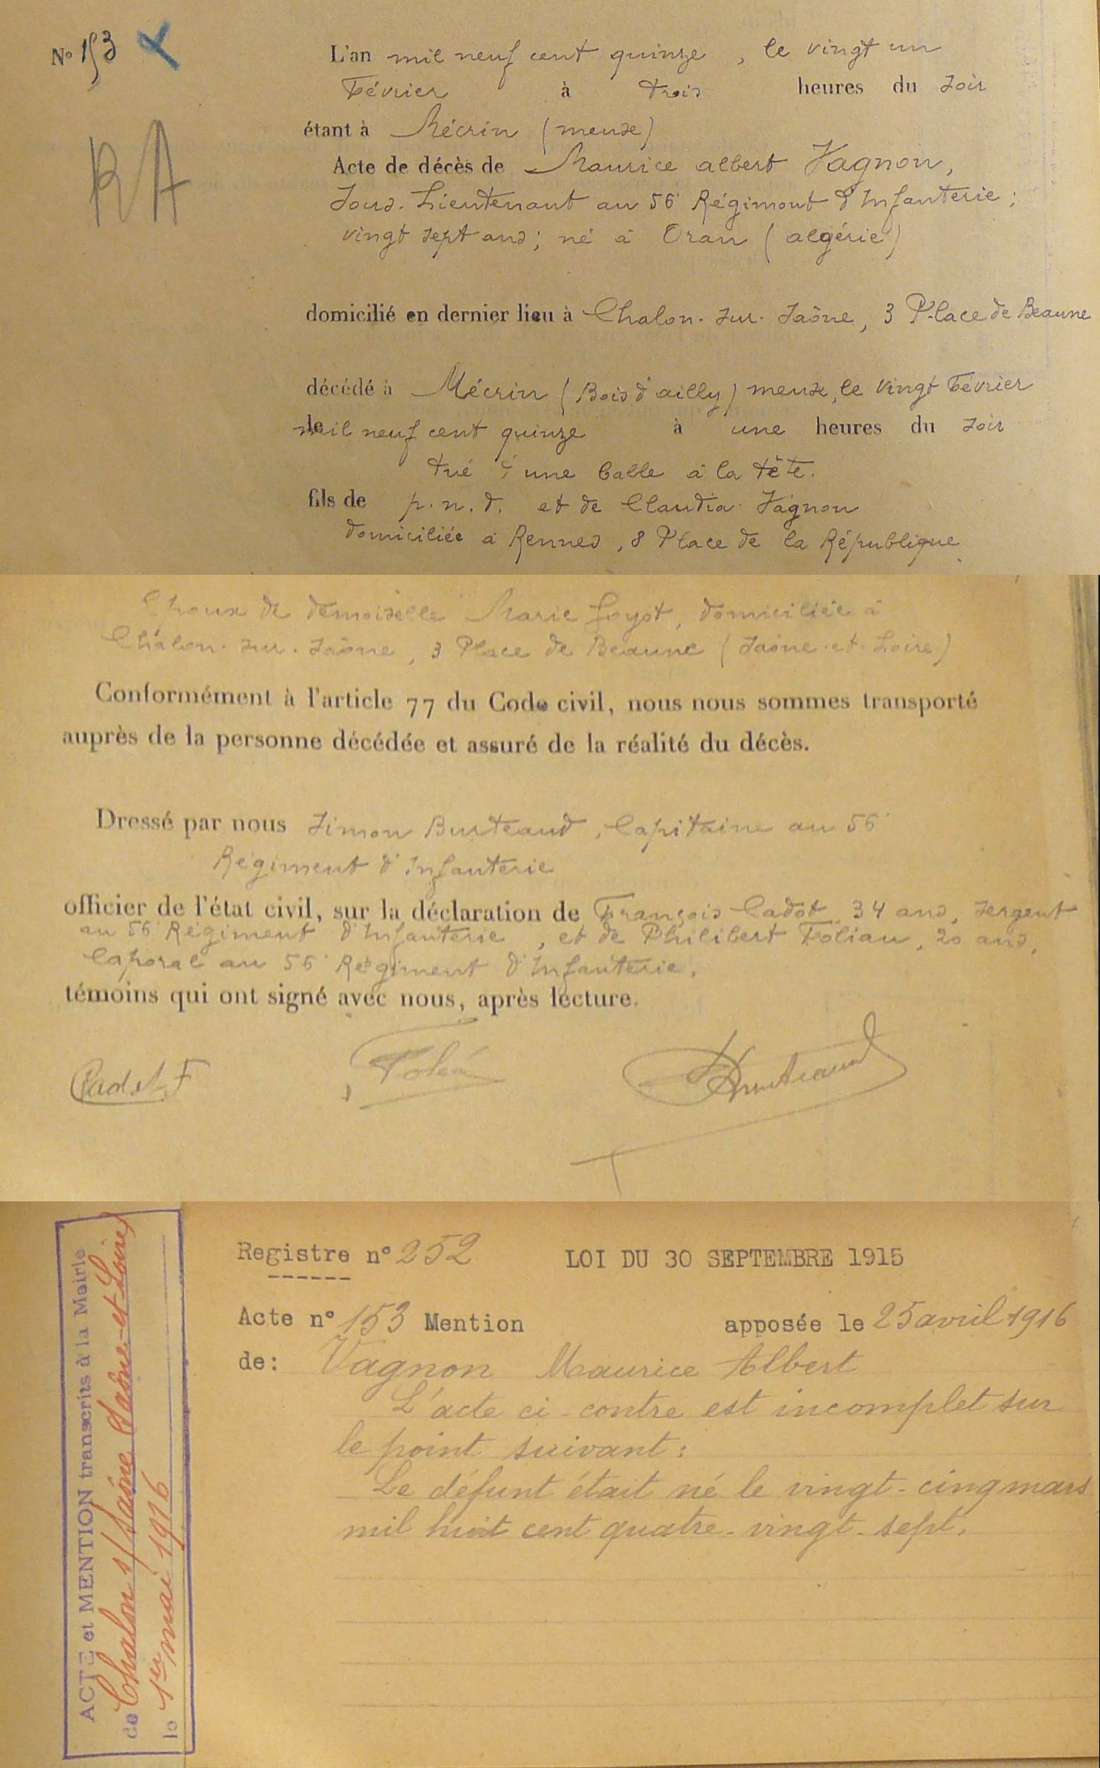 N° 153
RA
L'an mil neuf cent quinze, le vingt un
Février à trois heures du soir
étant à Mécrin (meuse)
Acte de décès de Maurice albert Vagnon,
Sous-Lieutenant au 56 Régiment d'Infanterie;
vingt sept ans; né à Oran (algérie)
domicilié en dernier lieu à Chalon-sur-Saône, 3 Place de Beaune
décédé à Mécrin (Bois d'ailly) meuse, le vingt Février
le mil neuf cent quinze à une heures du soir
tué d'une balle à la tête.
fils de p.n.d. et de Claudia Vagnon
domiciliée à Rennes, 8 Place de la République
Epoux de demoiselle Marie Goyot, domiciliée à
Châlon-sur-Saône, 3 Place de Beaune (Saône-et-Loire)
Conformément à l'article 77 du Code civil, nous nous sommes transporté
auprès de la personne décédée et assuré de la réalité du décès.
Dressé par nous Simon Burteaud, Capitaine au 56
Régiment d'Infanterie
officier de l'état civil, sur la déclaration de François Cadot, 34 ans, sergent
au 56 Régiment d'Infanterie, et de Philibert Foliau, 20 ans,
Caporal au 56 Régiment d'Infanterie,
témoins qui ont signé avec nous, après lecture.
Cadot F
ACTE et MENTION transcrits à la Mairie
de Chalon s/Saône Saône-et-Loire
le 1er mai 1916
Registre n° 252 LOI DU 30 SEPTEMBRE 1915
Acte n° 153 Mention apposée le 25 avril 1916
de: Vagnon Maurice Albert
L'acte ci-contre est incomplet sur
le point suivant:
Le défunt était né le vingt-cinq mars
mil huit cent quatre-vingt-sept.